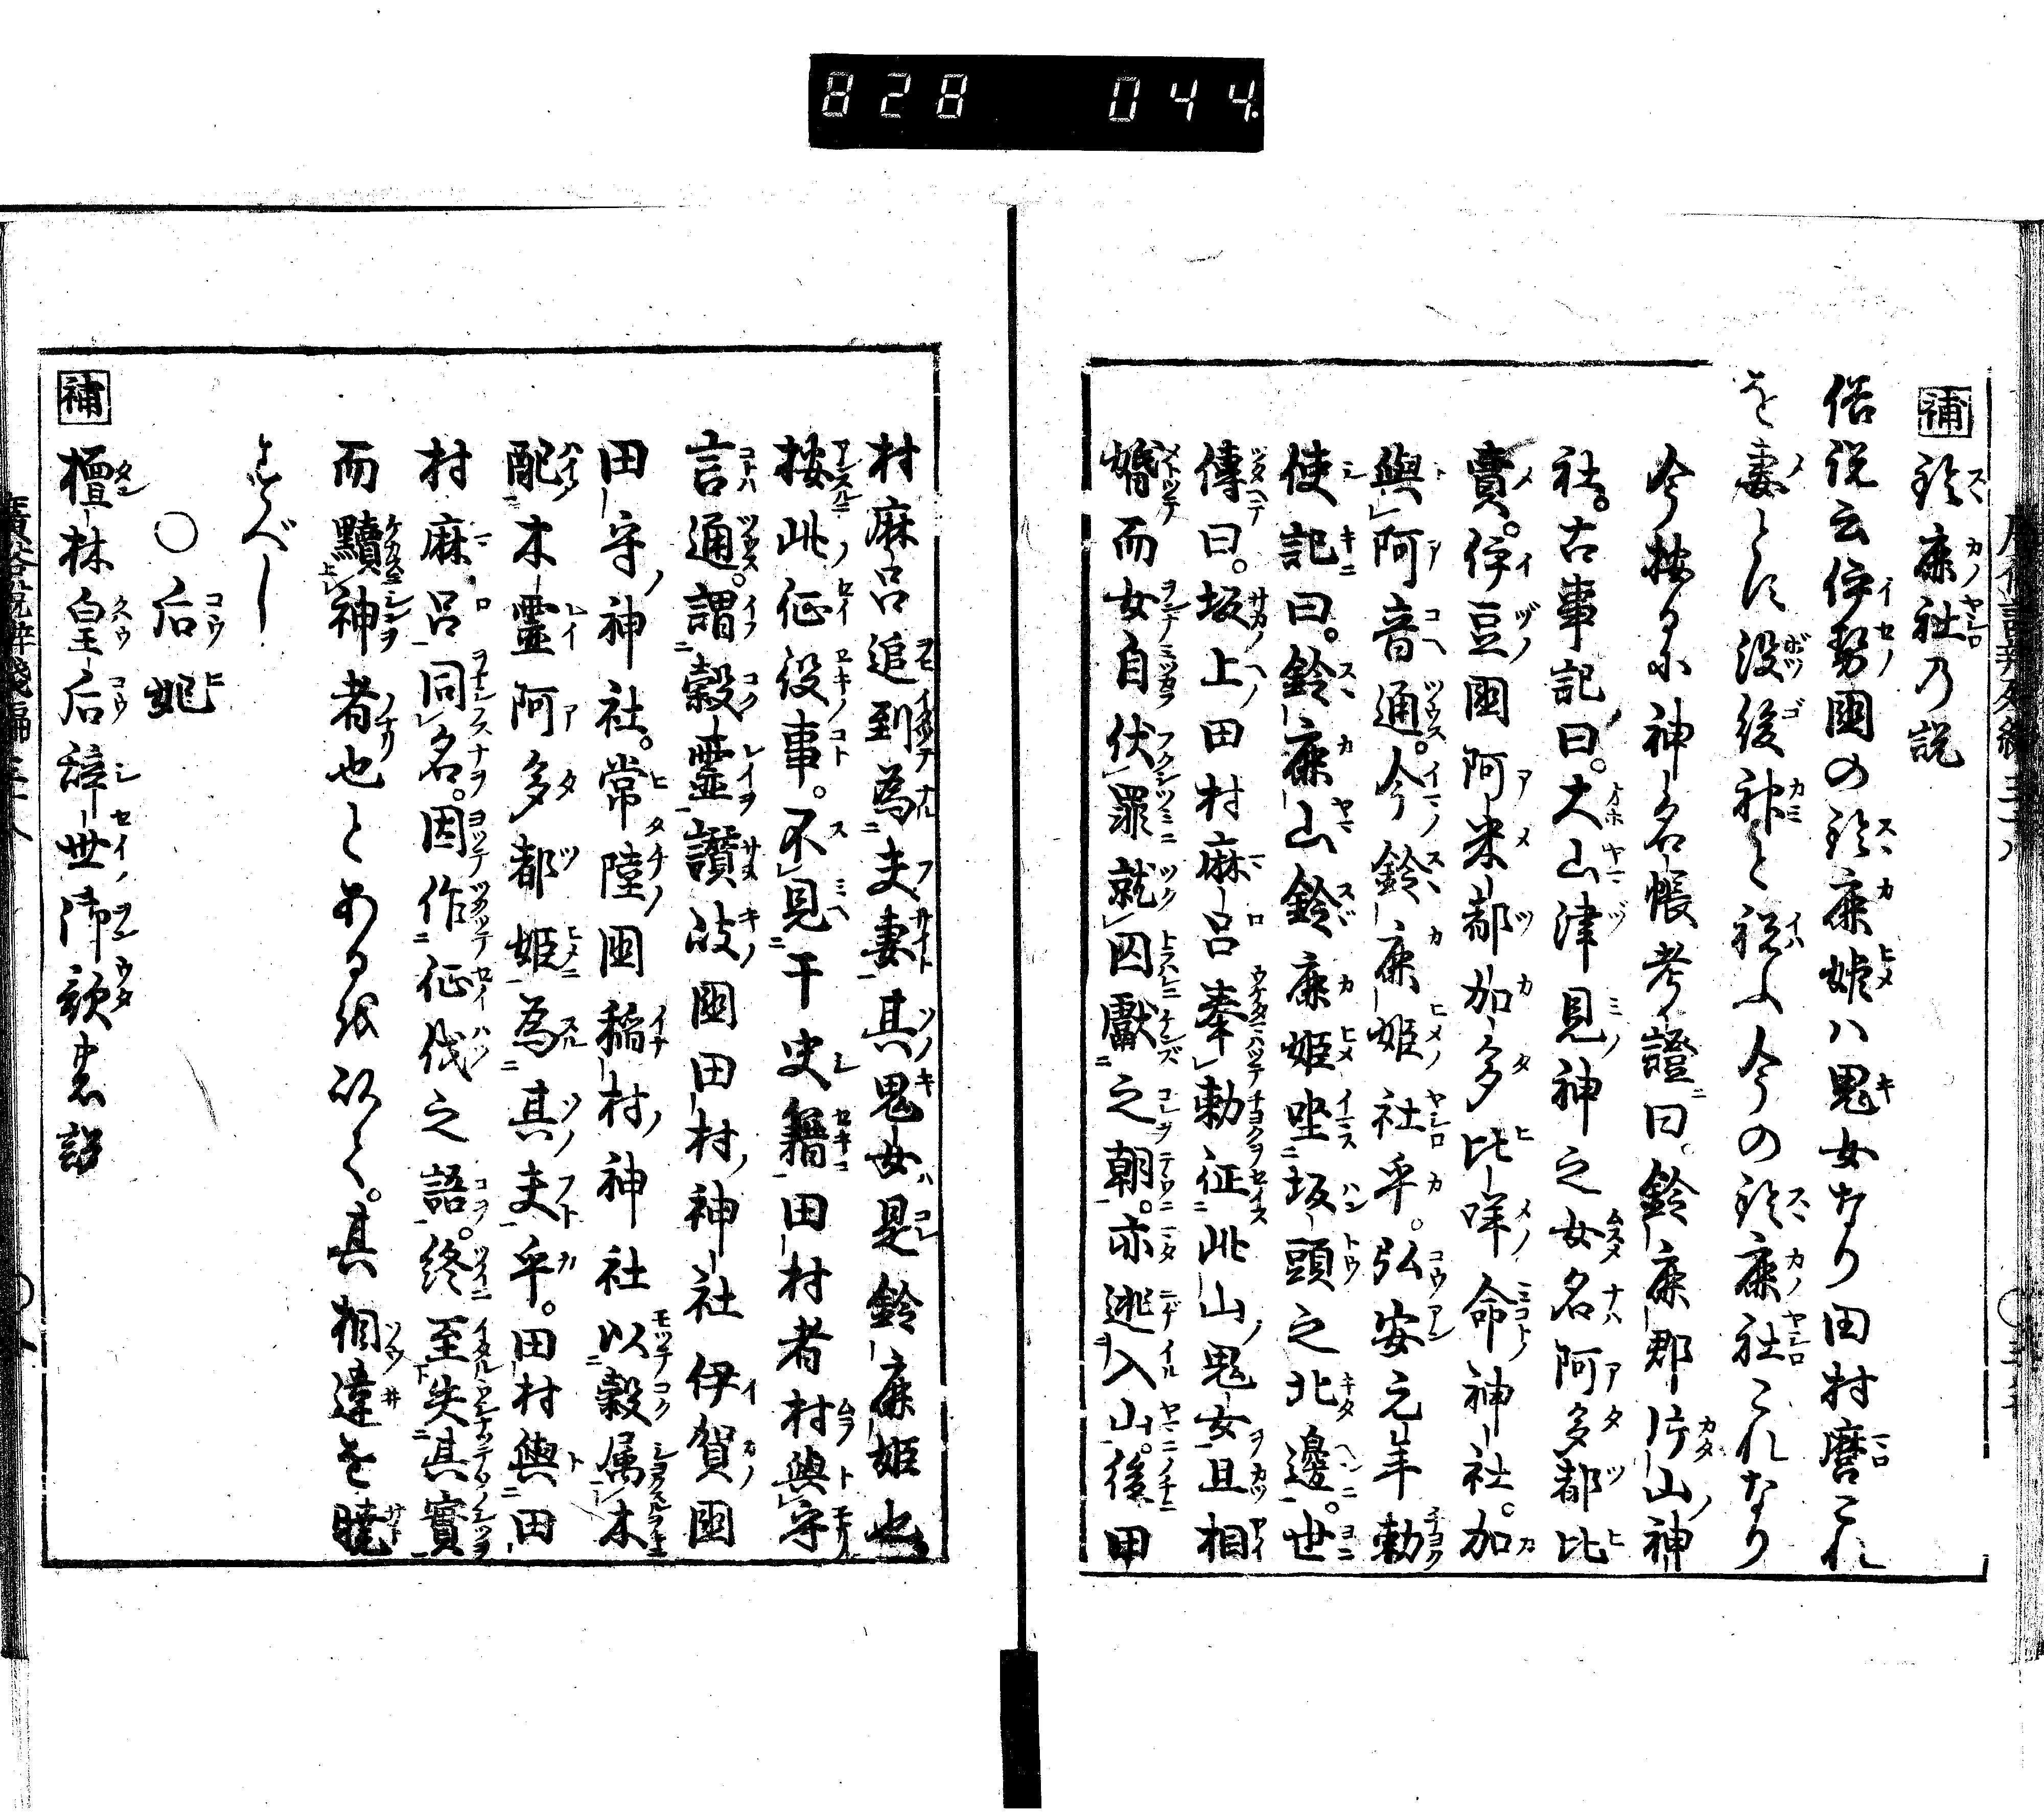 828 044
補 鈴鹿社乃説
俗説云伊勢国の鈴鹿姫ハ鬼女なり田村麿これ
を妻とし没後神と祝ふ今の鈴鹿社これなり
今按るに神名帳考證曰。鈴鹿郡片山神
社。古事記曰。大山津見神之女名阿多都比
賣。伊豆國阿米都加多比咩命神社。加
與阿音通。今鈴鹿姫社乎。弘安元年勅
使記曰。鈴鹿山鈴鹿姫坐坂頭之北邊。世
傳曰。坂上田村麻呂奉勅征此山鬼女且相
婚而女自伏罪就囚獻之朝。亦逃入山。後田
村麻呂追到為夫妻其鬼女是鈴鹿姫也
按此征役事。不見于史籍田村者村與守
言通。謂穀靈讃岐國田村神社伊賀國
田守神社。常陸国稲村神社以穀属木
配木靈阿多都姫為其夫乎。田村與田
村麻呂同名。因作征伐之語。終至失其實
而黷神者也とある以て。其相違を曉
すべし
○后妃
補 檀林皇后辞世御歌の説